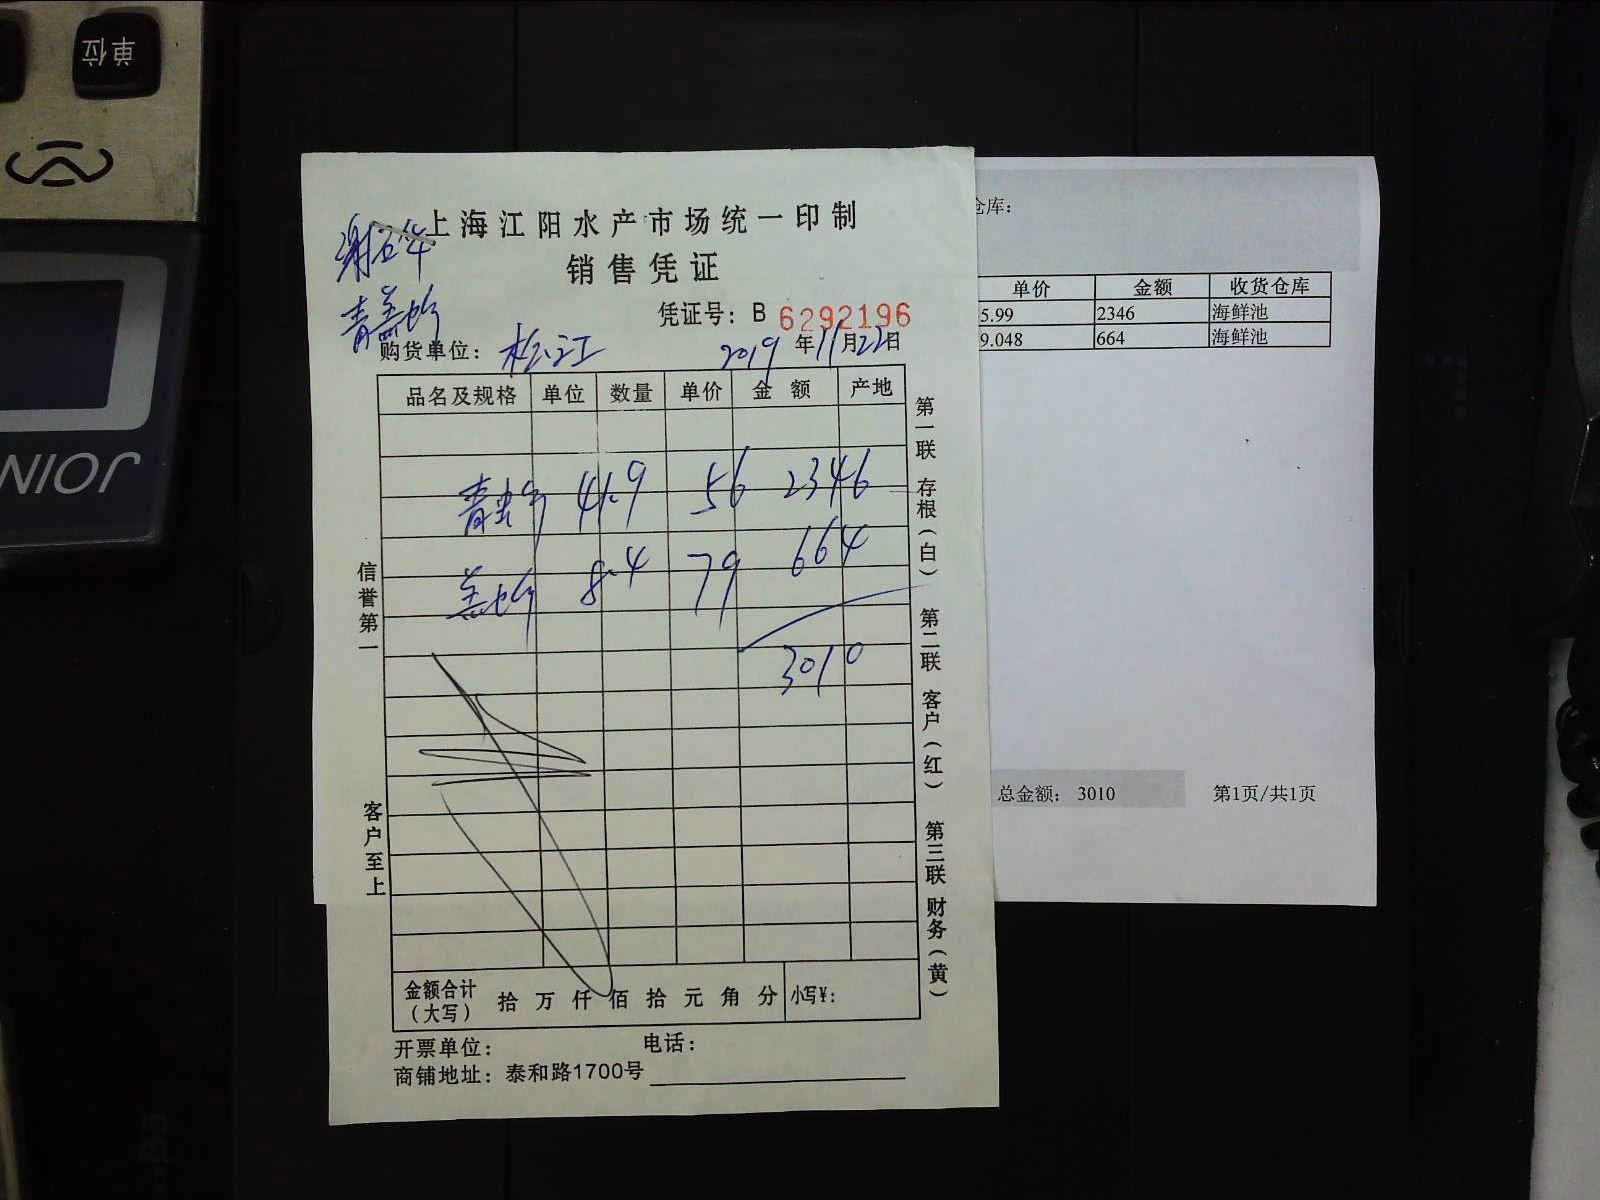 单位
JOIN
上海江阳水产市场统一印制
销售凭证
凭证号：B 6292196
购货单位：松江 2019年11月22日
品名及规格 单位 数量 单价 金额 产地
41.9 56 2346
8.4 79 664
3010
信誉第一
客户至上
第一联 存根（白） 第二联 客户（红） 第三联 财务（黄）
金额合计（大写） 拾 万 仟 佰 拾 元 角 分 小写¥：
开票单位： 电话：
商铺地址：泰和路1700号
仓库：
单价 金额 收货仓库
5.99 2346 海鲜池
9.048 664 海鲜池
总金额： 3010 第1页/共1页